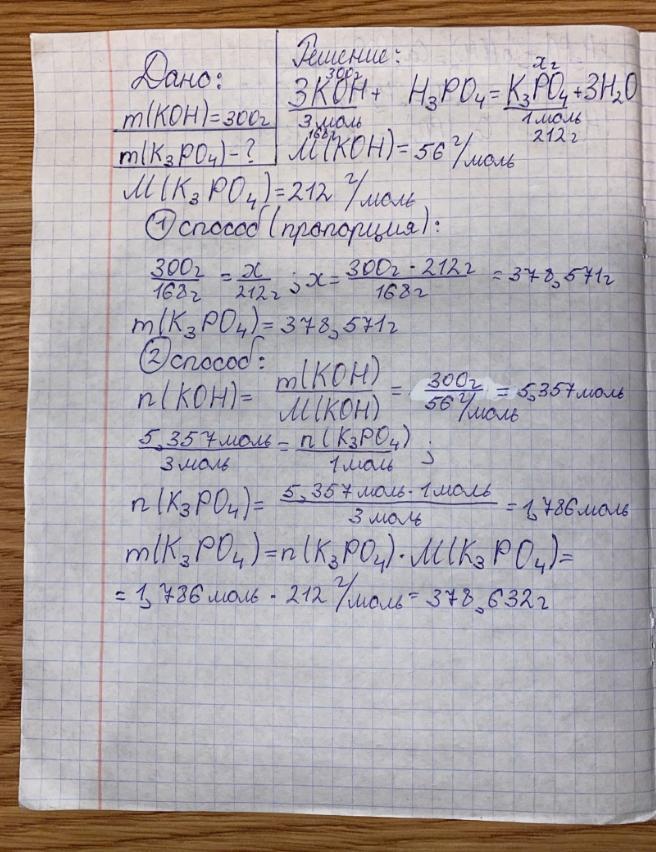 Дано:
m(KOH)=300г
m(K₃PO₄)-?
Решение:
300г xг
3KOH + H₃PO₄ = K₃PO₄ + 3H₂O
3 моль 1 моль
168г 212г
M(KOH)=56 г/моль
M(K₃PO₄)=212 г/моль
① способ (пропорция):
300г/168г = x/212г ; x = 300г · 212г/168г = 378,571г
m(K₃PO₄)=378,571г
② способ:
n(KOH)= m(KOH)/M(KOH) = 300г/56 г/моль = 5,357 моль
5,357 моль/3 моль = n(K₃PO₄)/1 моль ;
n(K₃PO₄)= 5,357 моль · 1 моль/3 моль = 1,786 моль
m(K₃PO₄)=n(K₃PO₄) · M(K₃PO₄)=
= 1,786 моль · 212 г/моль = 378,632г